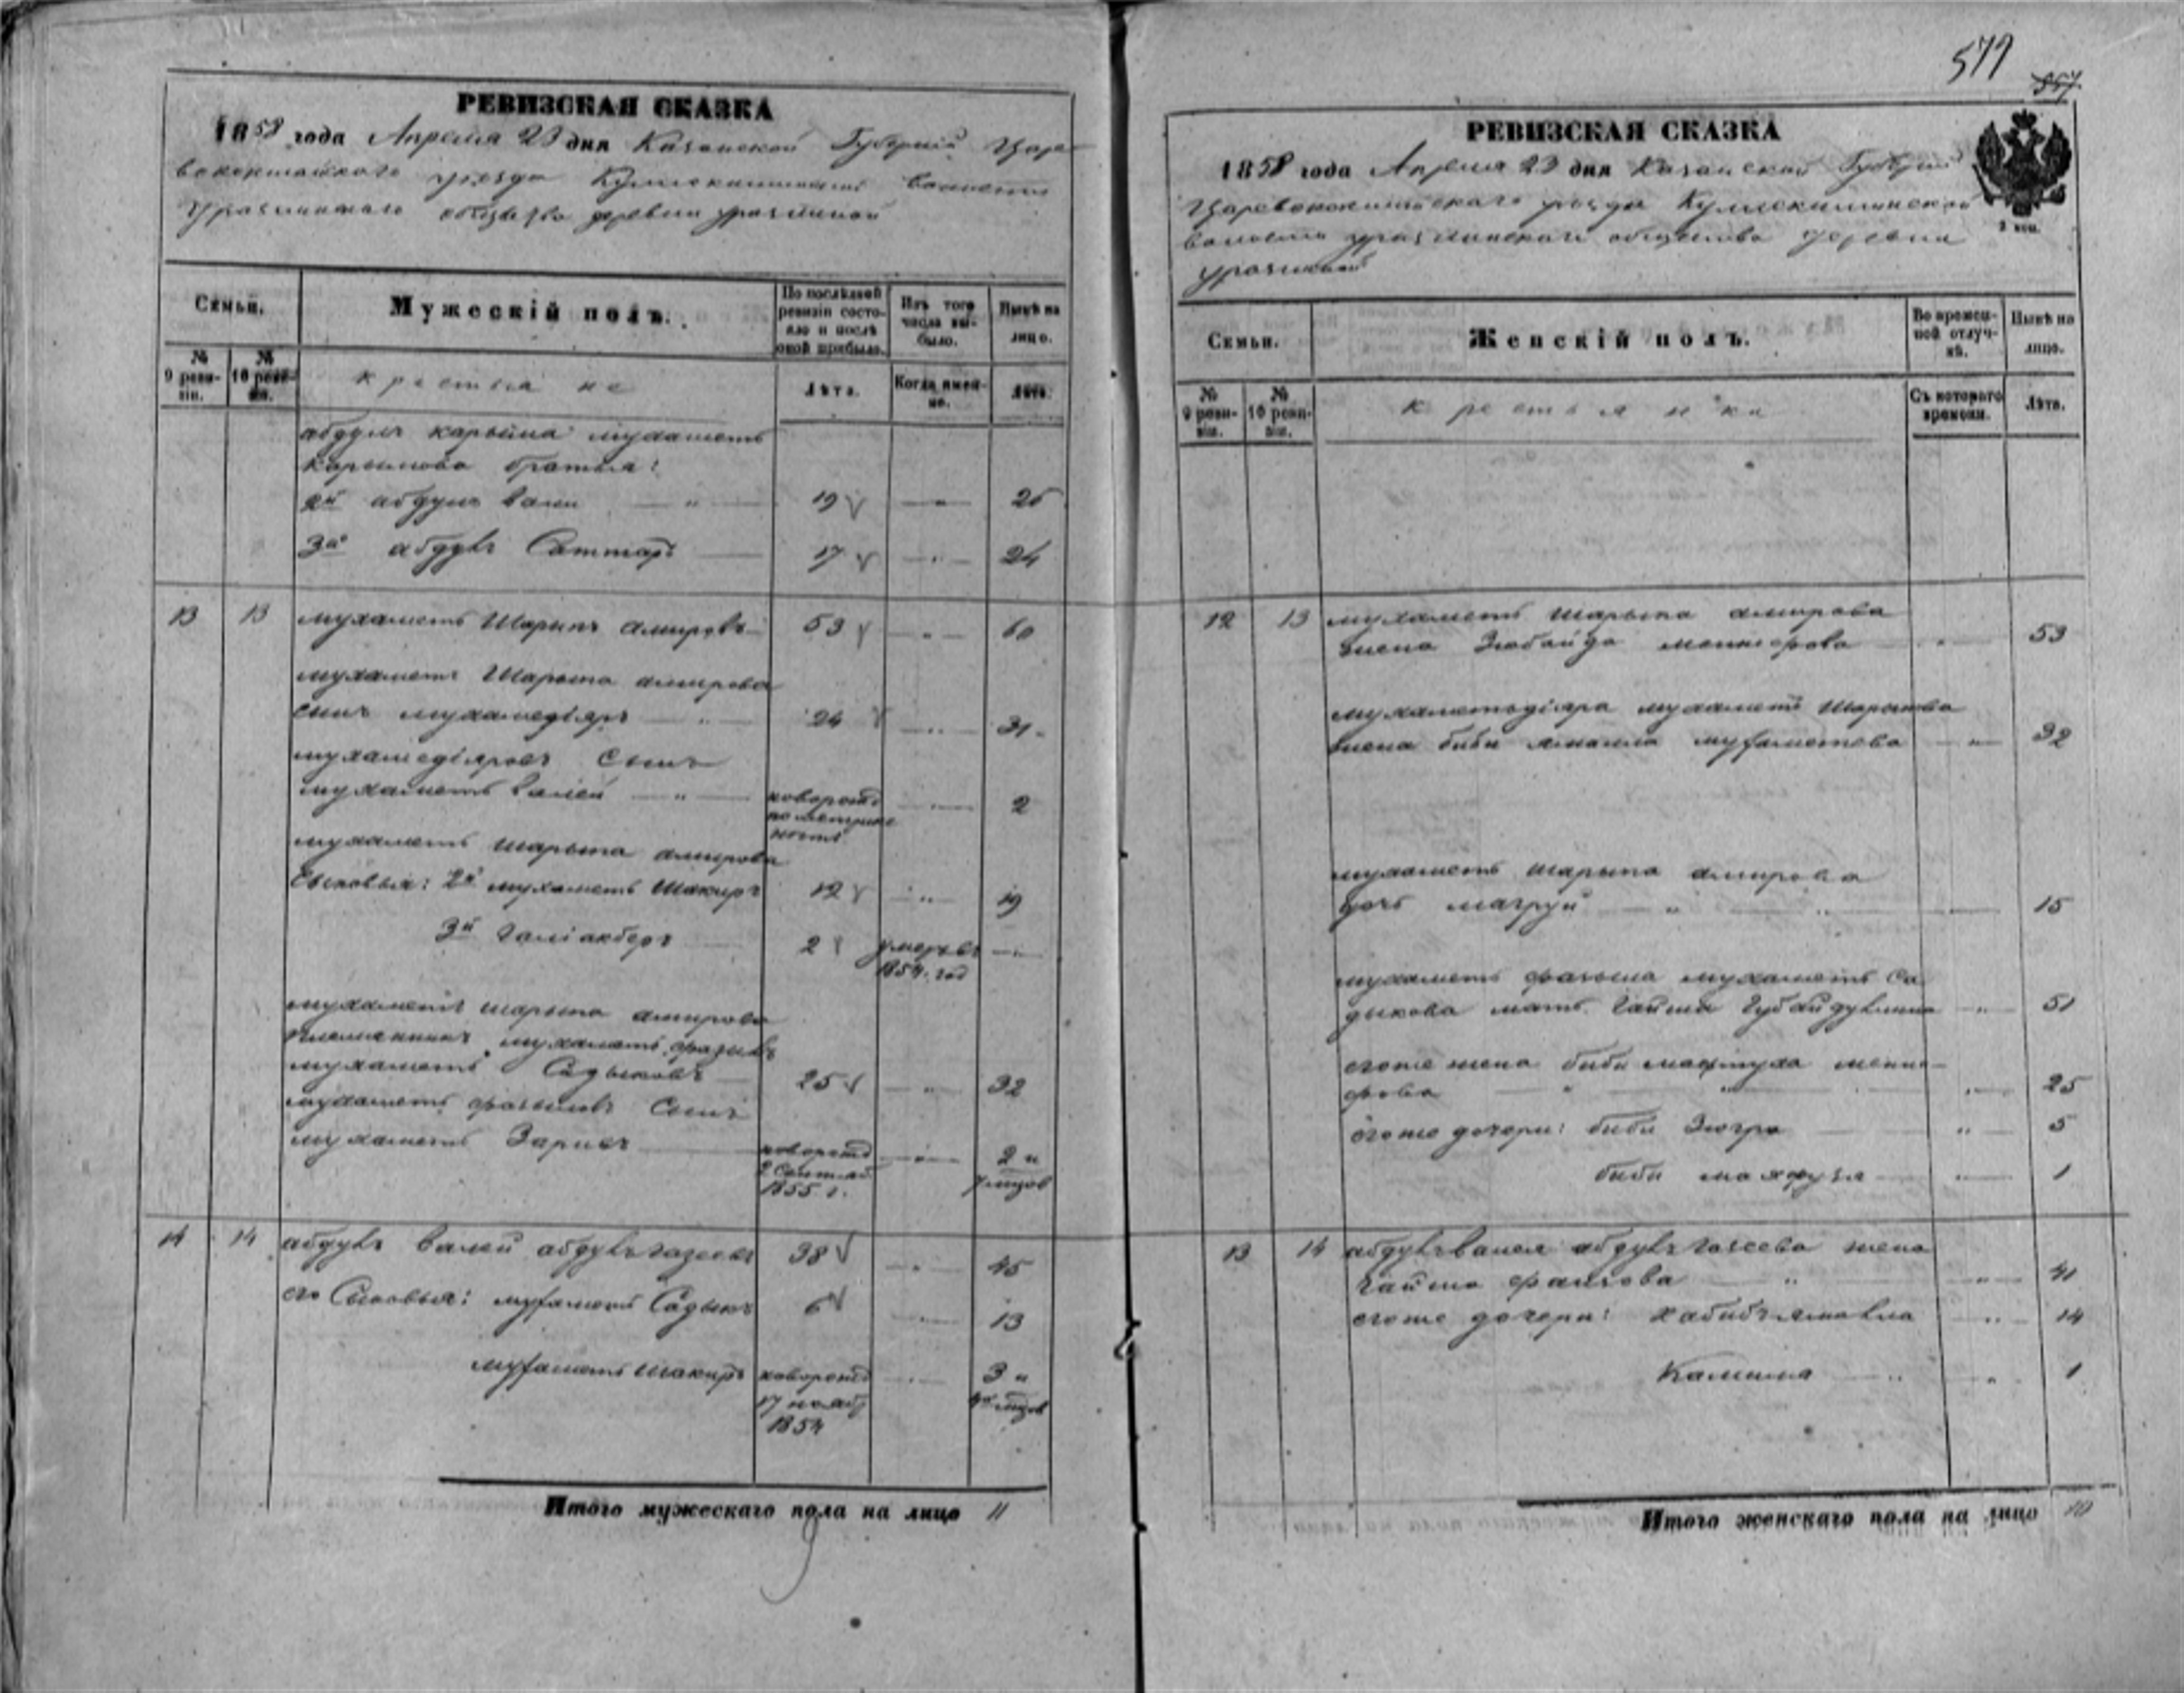 577
357
РЕВИЗСКАЯ СКАЗКА
1858 года Апреля 23 дня Казанской Губернiи Царе-
вококшайскаго уезда волости
общества деревни
Семьи.
Мужескiй полъ.
По послѣдней ревизiи состо-яло и послѣ оной прибыло.
Изъ того числа вы-было.
Нынѣ на лицо.
№ 9 реви-зiи.
№ 10 реви-зiи.
крестьяне
Лѣта.
Когда имен-но.
Лѣта.
абдулъ карыма мухаметъ
карымова братья:
2й абдулъ вали — " — 19 — " —
3й абдулъ Саттаръ — 17 — " — 24
13 13 мухаметъ Шарыпъ амировъ — 53 — " — 60
мухаметъ Шарыпа амирова
сынъ мухамедiяръ — " — 24 — " — 31
мухамедiяровъ сынъ
мухаметъ валей — " — новорожд — " — 2
мухаметъ шарыпа амирова
сыновья: 2й мухаметъ Шакиръ 12 — " — 19
3й галiакберъ — 2 умеръ въ 1854 год — " —
мухаметъ шарыпа амирова
племянникъ мухаметъ фазылъ
мухаметъ Садыковъ — 25 — " — 32
мухаметъ фазыловъ сынъ
мухаметъ Зариеъ — новорожд 2 Сентяб 1855 г. — " — 2 и 7 мцов
14 14 абдулъ валей абдулъгазеевъ 38 — " — 45
его сыновья: мухаметъ Садыкъ 6 — " — 13
мухаметъ шакиръ новорожд 17 нояб 1854 — " — 3 и мцов
Итого мужескаго пола на лицо 11
РЕВИЗСКАЯ СКАЗКА
1858 года Апреля 23 дня Казанской Губернiи
Царевококшайскаго уезда
волости общества деревни
Семьи.
Женскiй полъ.
Во времен-ной отлуч-кѣ.
Нынѣ на лицо.
№ 9 реви-зiи.
№ 10 реви-зiи.
крестьянки
Съ котораго времени.
Лѣта.
12 13 мухаметъ шарыпа амирова
жена Зюбайда — " — 53
мухаметъ Шарыпова
жена биби мухаметова — " — 32
мухаметъ шарыпа амирова
дочь магруй — " — 15
мухаметъ фазыла мухаметъ Са-
дыкова мать Гайша — " — 51
егоже жена биби
— " — 25
егоже дочери: биби Зюгра — " — 5
биби махфуза — " — 1
13 14 абдулъвалея абдулъгазеева жена
гайша — " — 41
егоже дочери: — " — 14
Камиля — " — 1
Итого женскаго пола на лицо 10